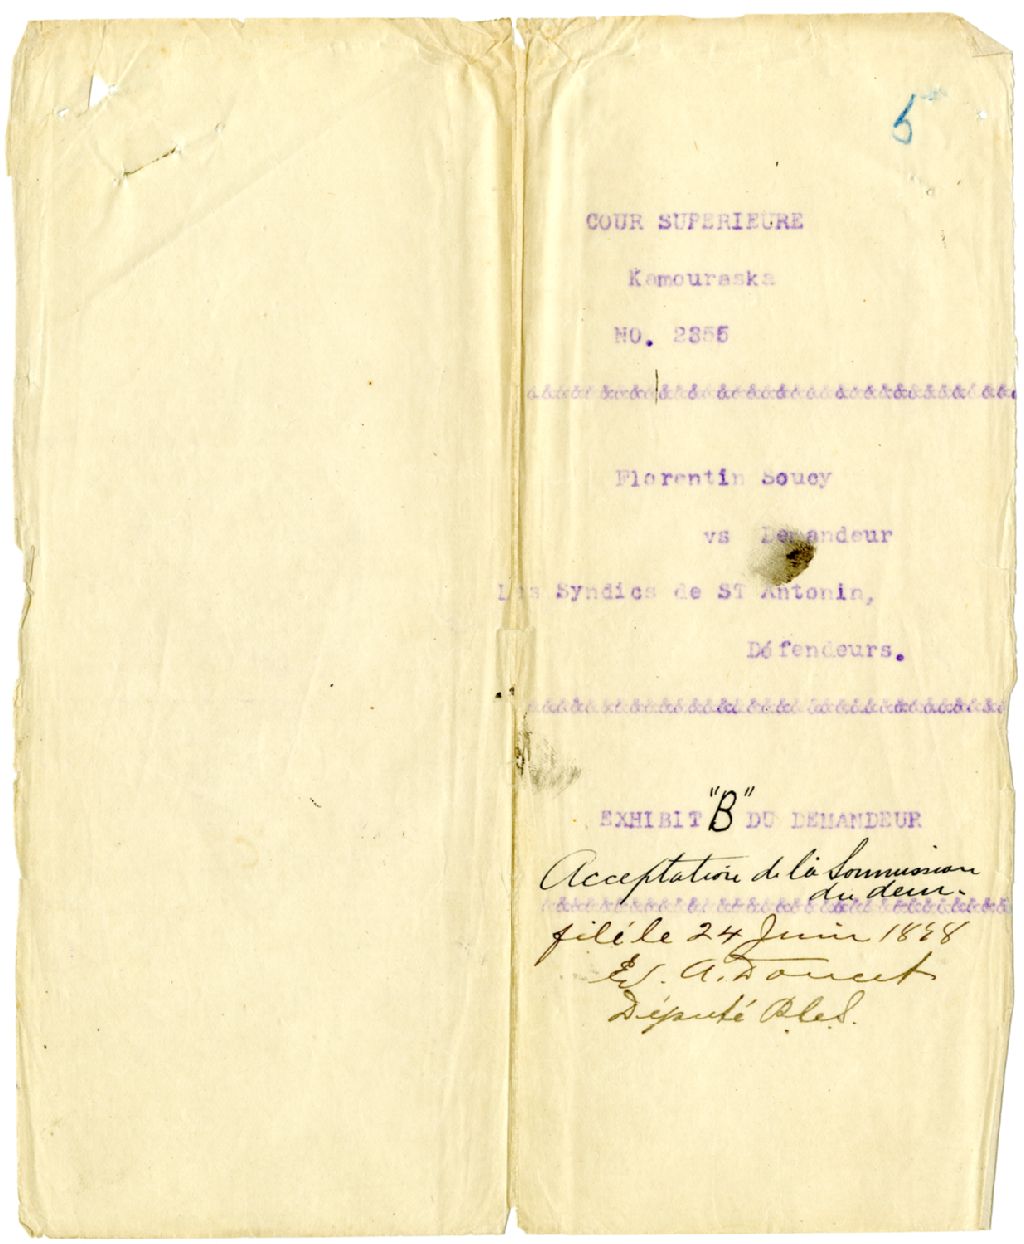 5
COUR SUPERIEURE
Kamouraska
NO. 2355
Florentin Soucy
vs Demandeur
Les Syndics de ST Antonin,
Défendeurs.
EXHIBIT "B" DU DEMANDEUR
Acceptation de la Soumission
du dem.
filé le 24 Juin 1898
A. Doucet
Député P.C.S.